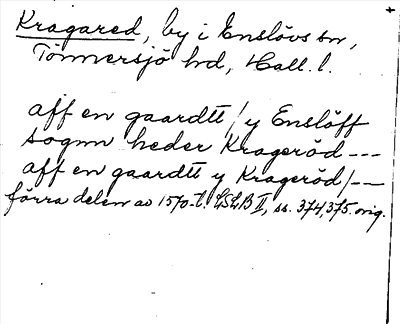 Kragared, by i Enslövs sn,
Tönnersjö hd, Hall. l.
aff en gaardtt / y Enslöff
sognn heder Krageröd ---
aff en gaardtt y Krageröd /--
förra delen av 1570-t. LSLB II, ss. 374, 375. orig.